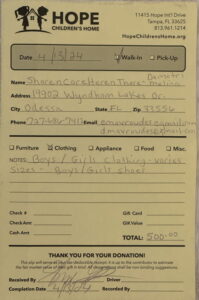 HOPE
CHILDREN'S HOME
11415 Hope Int'l Drive
Tampa, FL 33625
813.961.1214
HopeChildrensHome.org
Date 4/13/24 Walk-In Pick-Up
Name
Address 19902 Wyndham Lakes Dr.
City Odessa State FL Zip 33556
Phone Email
Furniture Clothing Appliance Food Misc.
NOTES: Boys / Girls clothing - varies
sizes - Boys / Girls shoes
Check # Gift Card
Check Amt Gift Value
Cash Amt TOTAL: 500.00
THANK YOU FOR YOUR DONATION!
This slip will serve as your tax deductible donation. It is up to the contributor to estimate
the fair market value of item gift in kind.
Received By Driver
Completion Date Recorded By